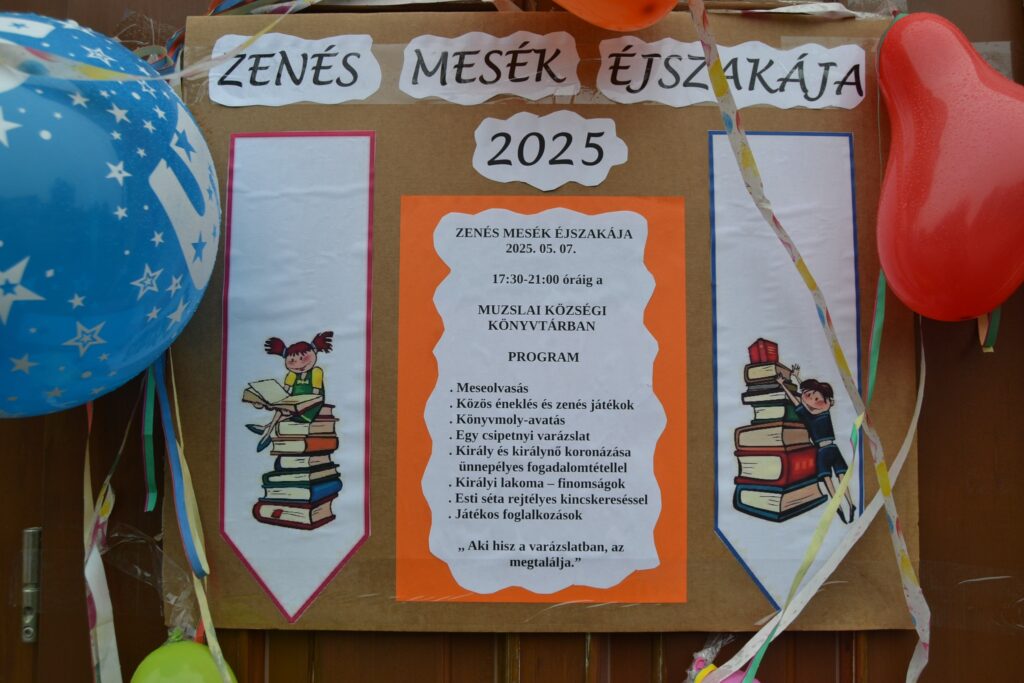 ZENÉS MESÉK ÉJSZAKÁJA
2025
ZENÉS MESÉK ÉJSZAKÁJA
2025. 05. 07.
17:30-21:00 óráig a
MUZSLAI KÖZSÉGI
KÖNYVTÁRBAN
PROGRAM
. Meseolvasás
. Közös éneklés és zenés játékok
. Könyvmoly-avatás
. Egy csipetnyi varázslat
. Király és királynő koronázása
ünnepélyes fogadalomtétellel
. Királyi lakoma – finomságok
. Esti séta rejtélyes kincskereséssel
. Játékos foglalkozások
,, Aki hisz a varázslatban, az
megtalálja.”